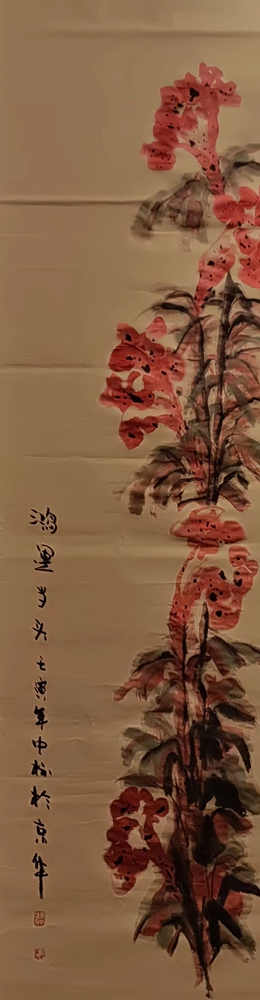 鸿運当头壬寅年中秋於京华